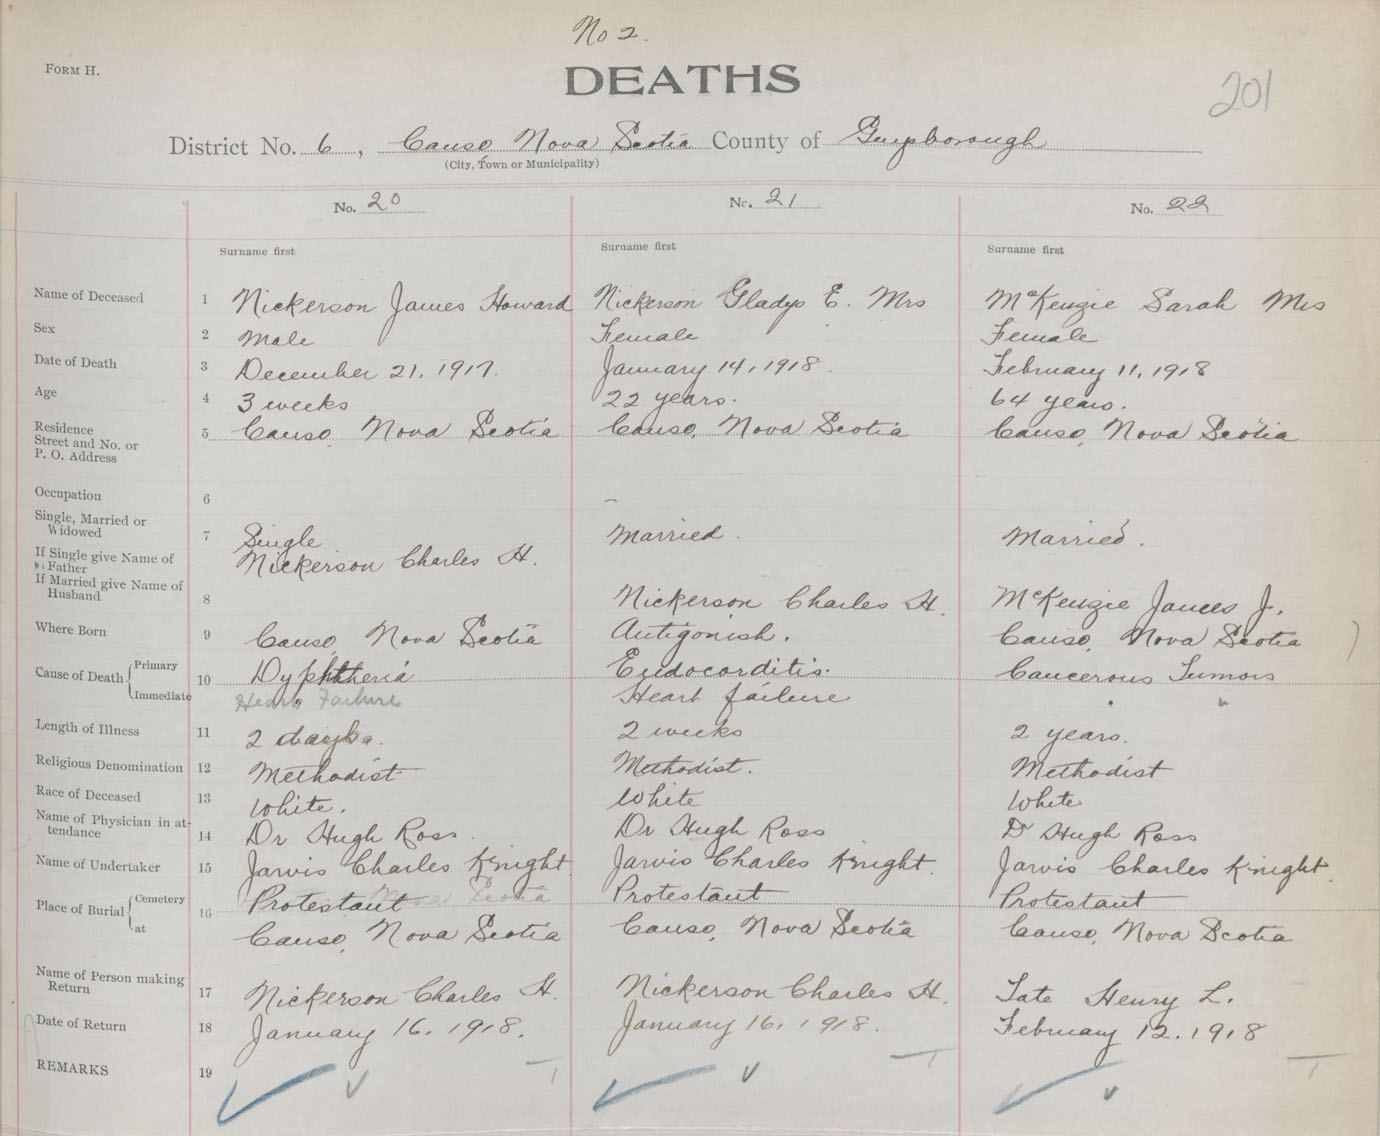 No 2.
FORM H.
DEATHS
201
District No. 6, Canso, Nova Scotia County of Guysborough
(City, Town or Municipality)
No. 20 No. 21 No. 22
Surname first Surname first Surname first
Name of Deceased 1 Nickerson James Howard Nickerson Gladys E. Mrs McKenzie Sarah Mrs
Sex 2 Male Female Female
Date of Death 3 December 21, 1917. January 14, 1918. February 11, 1918
Age 4 3 weeks 22 years. 64 years.
Residence
Street and No. or
P. O. Address 5 Canso, Nova Scotia Canso, Nova Scotia Canso, Nova Scotia
Occupation 6 –
Single, Married or
Widowed 7 Single Married. Married.
If Single give Name of
Father Nickerson Charles H.
If Married give Name of
Husband 8 Nickerson Charles H. McKenzie James J.
Where Born 9 Canso, Nova Scotia Antigonish. Canso, Nova Scotia
Cause of Death Primary 10 Dyphtheria Endocorditis. Cancerous Tumors
Immediate Heart Failure Heart failure "
Length of Illness 11 2 days. 2 weeks 2 years.
Religious Denomination 12 Methodist Methodist. Methodist
Race of Deceased 13 White. White White
Name of Physician in at-
tendance 14 Dr Hugh Ross. Dr Hugh Ross Dr Hugh Ross
Name of Undertaker 15 Jarvis Charles Knight Jarvis Charles Knight. Jarvis Charles Knight.
Place of Burial Cemetery 16 Protestant Protestant Protestant
at Canso, Nova Scotia Canso, Nova Scotia Canso, Nova Scotia
Name of Person making
Return 17 Nickerson Charles H. Nickerson Charles H. Tate Henry L.
Date of Return 18 January 16, 1918. January 16, 1918. February 12, 1918
REMARKS 19